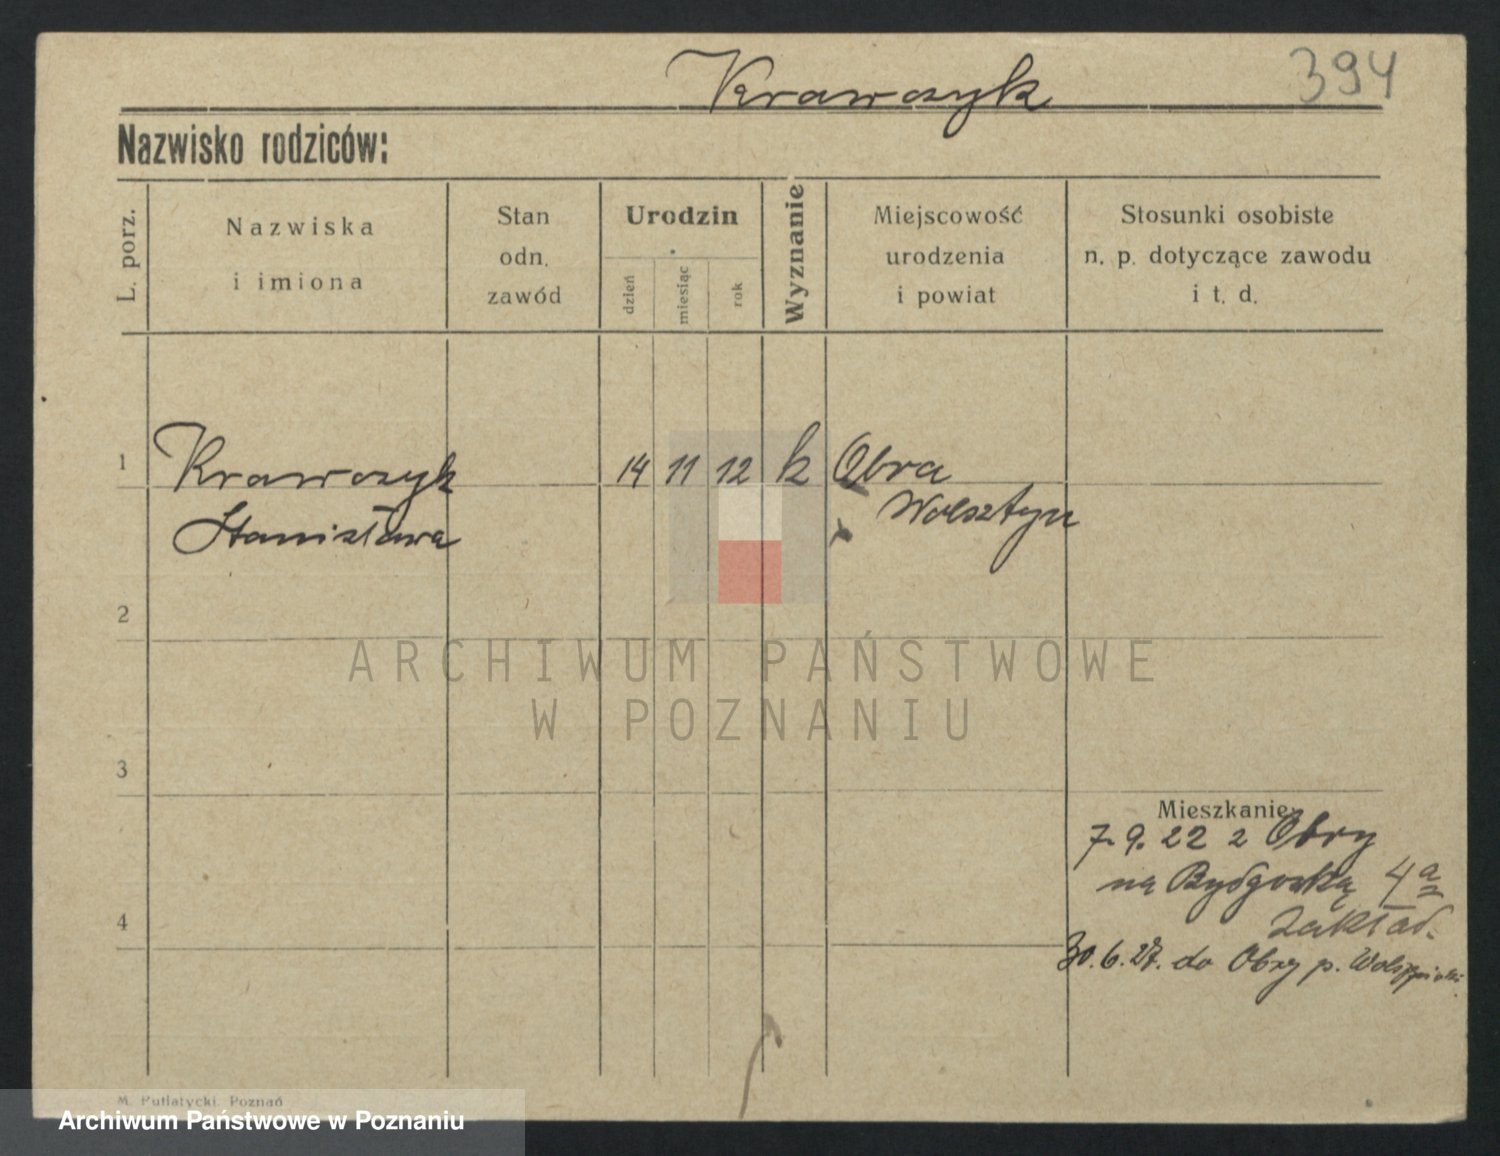 Krawczyk
394
Nazwisko rodziców:
L. porz.
Nazwiska
i imiona
Stan
odn.
zawód
Urodzin
dzień
miesiąc
rok
Wyznanie
Miejscowość
urodzenia
i powiat
Stosunki osobiste
n. p. dotyczące zawodu
i t. d.
1 Krawczyk 14 11 12 k Obra
Stanisława Wolsztyn
2
ARCHIWUM PAŃSTWOWE
W POZNANIU
3
Mieszkanie
7.9.22 z Obry
na Bydgoską 4a
Zakład.
4
30.6.27. do Obry p.
M. Putiatycki, Poznań
Archiwum Państwowe w Poznaniu